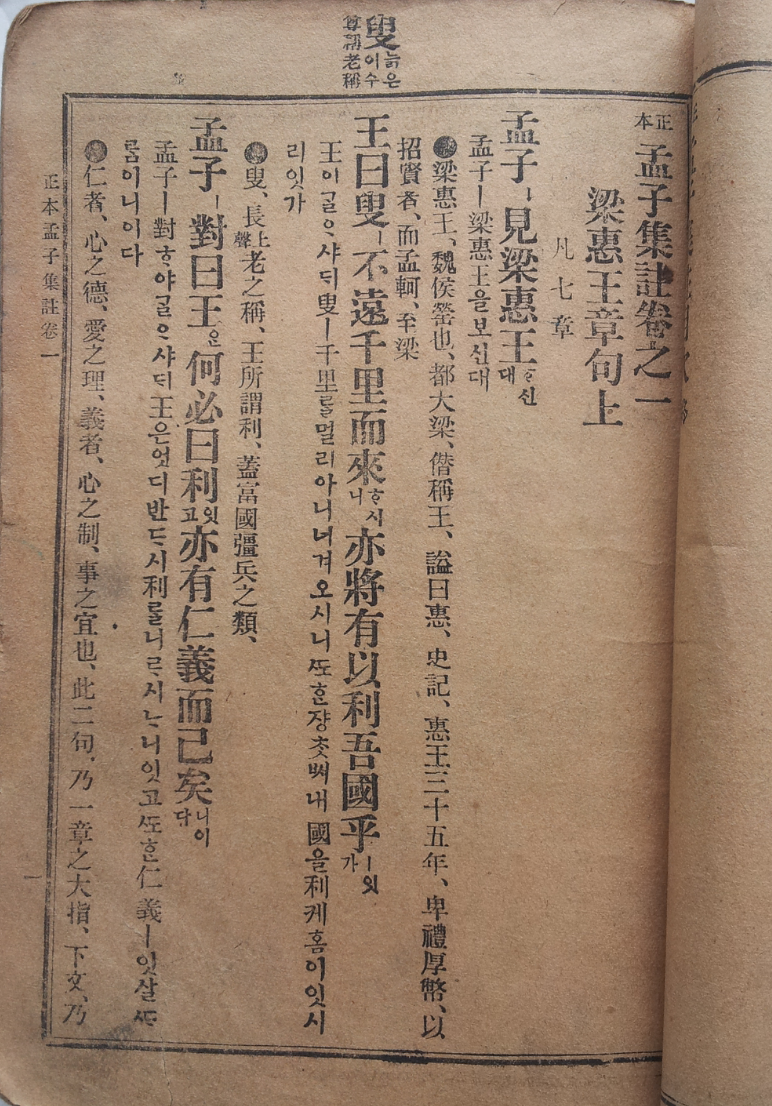 叟 늙은이수
尊稱老稱
正本 孟子集註卷之一
梁惠王章句上
凡七章
孟子ㅣ見梁惠王ᄒᆞ신대
孟子ㅣ梁惠王을보신대
梁惠王、魏侯罃也、都大梁、僭稱王、謚曰惠、史記、惠王三十五年、卑禮厚幣、以
招賢者、而孟軻、至梁
王曰叟ㅣ不遠千里而來ᄒᆞ시니亦將有以利吾國乎ㅣ잇가
王이ᄀᆞᆯᄋᆞ샤ᄃᆡ叟ㅣ千里를멀리아니너겨오시니ᄯᅩᄒᆞᆫ쟝ᄎᆞᆺᄡᅥ내國을利케홈이잇시
리잇가
叟、長上聲老之稱、王所謂利、蓋富國彊兵之類、
孟子ㅣ對曰王은何必曰利잇고亦有仁義而已矣니이다
孟子ㅣ對ᄒᆞ야ᄀᆞᆯᄋᆞ샤ᄃᆡ王은엇디반ᄃᆞ시利를니ᄅᆞ시ᄂᆞ니잇고ᄯᅩᄒᆞᆫ仁義ㅣ잇살ᄯᆞ
롬이니이다
仁者、心之德、愛之理、義者、心之制、事之宜也、此二句、乃一章之大指、下文、乃
正本孟子集註卷一